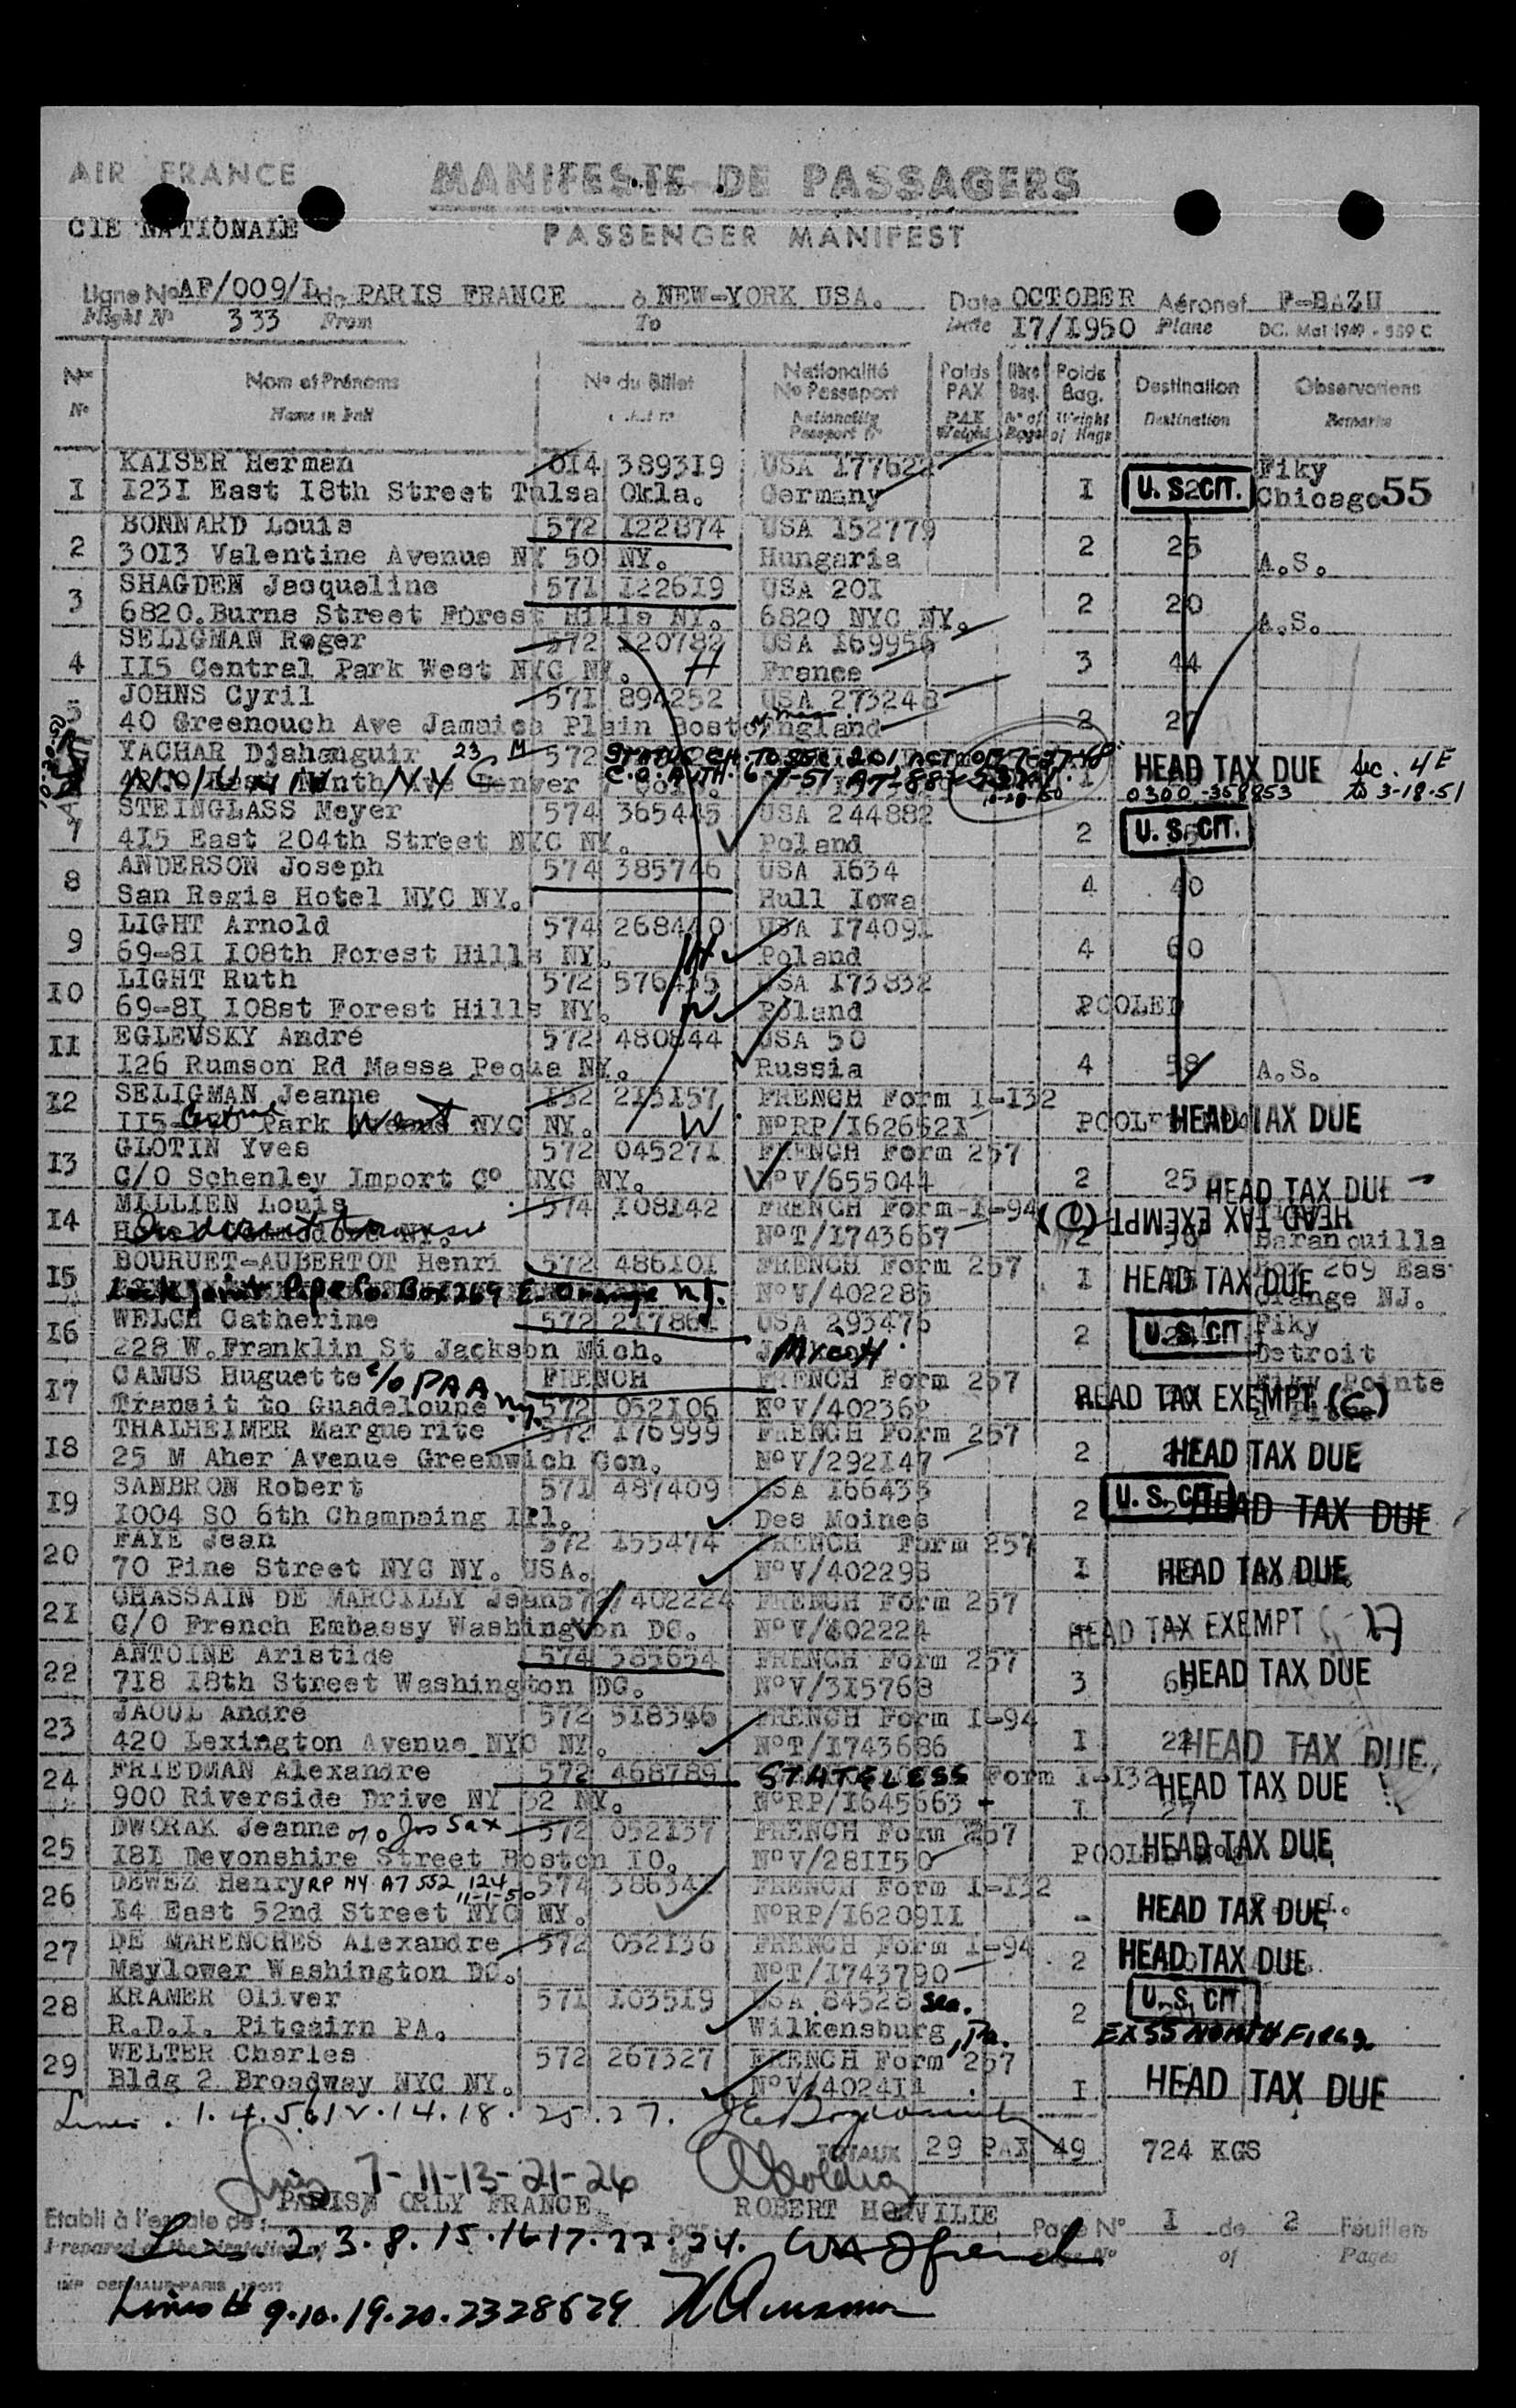 AIR FRANCE
MANIFESTE DE PASSAGERS
CIE NATIONALE
PASSENGER MANIFEST
Ligne No AF/009/D de PARIS FRANCE à NEW-YORK USA. Date OCTOBER Aéronef F-BAZU
Flight No 333 From To Date I7/I950 Plane DC. Mai 1949 - 559 C
Nos Nom et Prénoms No du Billet Nationalité No Passeport Poids PAX Nbre Bag. Poids Bag. Destination Observations
No Name in Full Nationality Passport No PAX Weight No of Bags Weight of Bags Destination Remarks
KAISER Herman 0I4 3893I9 USA I77622 Fiky
I I23I East I8th Street Tulsa Okla. Germany I U. S. CIT. Chicago 55
BONNARD Louis 572 I22874 USA I52779
2 30I3 Valentine Avenue NY 50 NY. Hungaria 2 25 A.S.
SHAGDEN Jacqueline 57I I226I9 USA 20I
3 6820.Burns Street Forest Hills NY. 6820 NYC NY. 2 20 A.S.
SELIGMAN Roger 572 I20782 USA I69956
4 II5 Central Park West NYC NY. H France 3 44
JOHNS Cyril 57I 894252 USA 273248
5 40 Greenouch Ave Jamaica Plain Boston England 2 27
YACHAR Djahanguir 23 M 572 STATUS CH. TO SEC. 201, ACT OF
Ninth Ave Denver Colo. C.O. AUTH. 6-7-51 I HEAD TAX DUE Sec. 4E
10-20-50 0300-358853 to 3-18-51
STEINGLASS Meyer 574 365445 USA 244882
7 4I5 East 204th Street NYC NY. Poland 2 U. S. CIT.
ANDERSON Joseph 574 385746 USA I634
8 San Regis Hotel NYC NY. Hull Iowa 4 40
LIGHT Arnold 574 268440 USA I7409I
9 69-8I I08th Forest Hills NY. H Poland 4 60
LIGHT Ruth 572 576435 USA I73832
I0 69-8I I08st Forest Hills NY. W Poland POOLED
EGLEVSKY André 572 480844 USA 50
II I26 Rumson Rd Massa Pequa NY. Russia 4 58 A.S.
SELIGMAN Jeanne I32 2I3I57 FRENCH Form I-I32
I2 II5 Central Park West NYC NY. W NoRP/I62652I POOLED HEAD TAX DUE
GLOTIN Yves 572 04527I FRENCH Form 257
I3 C/O Schenley Import Co NYC NY. NoV/655044 2 25 HEAD TAX DUE
MILLIEN Louis 574 I08I42 FRENCH Form-I-94 HEAD TAX EXEMPT
I4 NY. NoT/I743667 2 Baranquilla
BOURUET-AUBERTOT Henri 572 486I0I FRENCH Form 257 Box 269 Eas
I5 Lock Joint Pipe Co. Box 269 E. Orange N.J. NoV/402285 I HEAD TAX DUE Orange NJ.
WELCH Catherine 572 2I7861 USA 293475 Fiky
I6 228 W.Franklin St Jackson Mich. MICH 2 U.S. CIT Detroit
CAMUS Huguette c/o PAA FRENCH FRENCH Form 257 Fiky Pointe
I7 Transit to Guadeloupe N.Y. 572 052I06 NoV/402362 HEAD TAX EXEMPT (C)
THALHEIMER Marguerite 572 I76999 FRENCH Form 257
I8 25 M Aher Avenue Greenwich Con. NoV/292I47 2 HEAD TAX DUE
SANBRON Robert 57I 487409 USA I66435
I9 I004 SO 6th Champaing Ill. Des Moines 2 U. S. CIT HEAD TAX DUE
FAYE Jean 572 I55474 FRENCH Form 257
20 70 Pine Street NYC NY. USA. NoV/402293 I HEAD TAX DUE
CHASSAIN DE MARCILLY Jean 572/402224 FRENCH Form 257
2I C/O French Embassy Washington DC. NoV/402224 HEAD TAX EXEMPT
ANTOINE Aristide 574 385654 FRENCH Form 257
22 7I8 I8th Street Washington DC. NoV/3I5768 3 HEAD TAX DUE
JAOUL André 572 5I8346 FRENCH Form I-94
23 420 Lexington Avenue NYC NY. NoT/I743686 I 22 HEAD TAX DUE
FRIEDMAN Alexandre 572 468789 STATELESS Form I-I32
24 900 Riverside Drive NY 32 NY. NoRP/I645663 I 27 HEAD TAX DUE
DWORAK Jeanne c/o Jos Sax 572 052I37 FRENCH Form 257
25 I8I Devonshire Street Boston I0. NoV/28II50 POOLED HEAD TAX DUE
DEWEZ Henry RP NY A7 552 124 11-1-50 574 386341 FRENCH Form I-I32
26 I4 East 52nd Street NYC NY. NoRP/I6209II - HEAD TAX DUE
DE MARENCHES Alexandre 572 052I36 FRENCH Form I-94
27 Maylower Washington DC. NoT/I743790 2 HEAD TAX DUE
KRAMER Oliver 57I I035I9 USA 84528 Sea.
28 R.D.I. Pitcairn PA. Wilkensburg, Pa. 2 U. S. CIT
WELTER Charles 572 267327 FRENCH Form 257
29 Bldg 2 Broadway NYC NY. NoV/4024I4 I HEAD TAX DUE
Lines . 1. 4. 5. 6. 12 . 14 . 18 . 25 . 27.
TOTAUX 29 PAX 49 724 KGS
Lines 7-11-13-21-26
PARIS ORLY FRANCE ROBERT
Etabli à l'escale de : par Page No I de 2 Feuillets
Prepared at the station of by Page No of Pages
Lines. 2. 3. 8. 15. 16 17. 22. 24.
Lines # 9. 10. 19. 20. 23 28 & 29